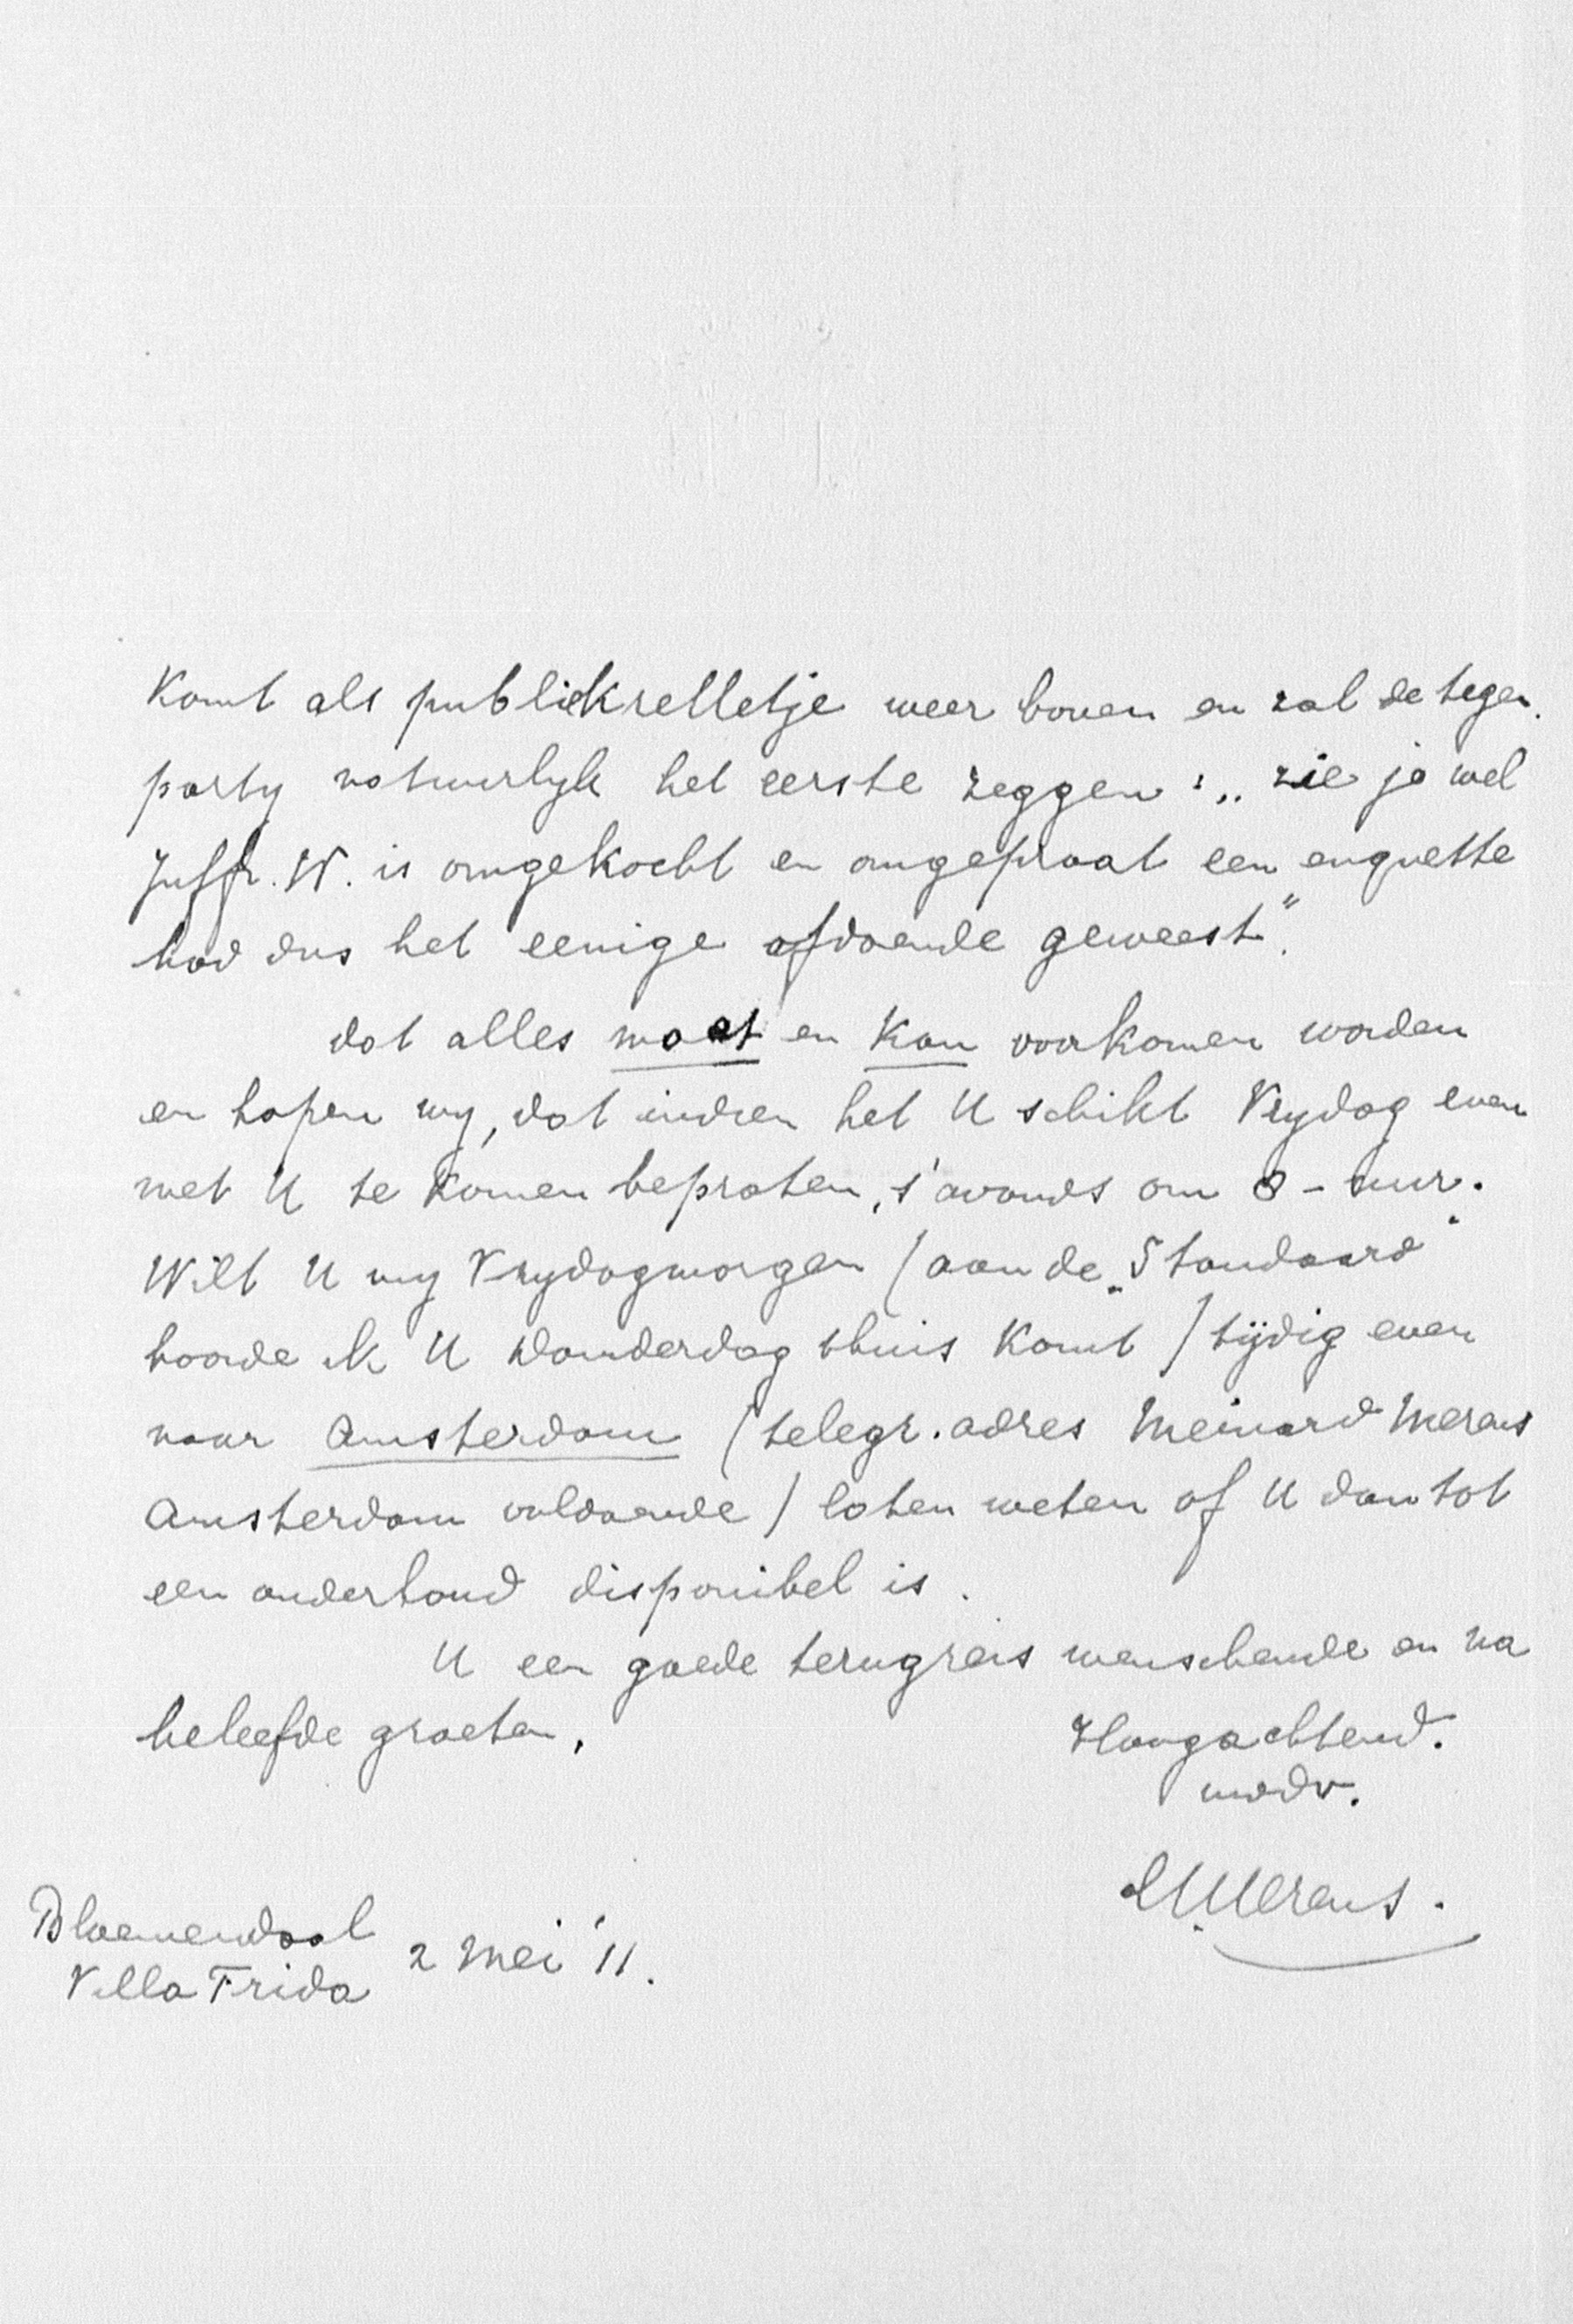 Komt als publiekrelletje weer boven en zal de tegen.
party natuurlyk het eerste zeggen: „zie je wel
Juffr. W. is omgekocht en omgepraat een enquette
had dus het eenige afdoende geweest".
dat alles moet en kan voorkomen worden
en hopen wy, dat indien het U schikt Vrydag even
met U te komen bepraten, s'avonds om 8 - uur.
Wilt U my Vrydagmorgen (aan de „Standaard"
hoorde ik U Donderdag thuis komt) tijdig even
naar Amsterdam (telegr. adres Meinard Merens
Amsterdam voldoende) laten weten of U dan tot
een onderhoud disponibel is.
U een goede terugreis wenschende en na
beleefde groeten,
Hoogachtend.
uwdv.
Merens.
Bloemendaal
Villa Frida
2 Mei '11.